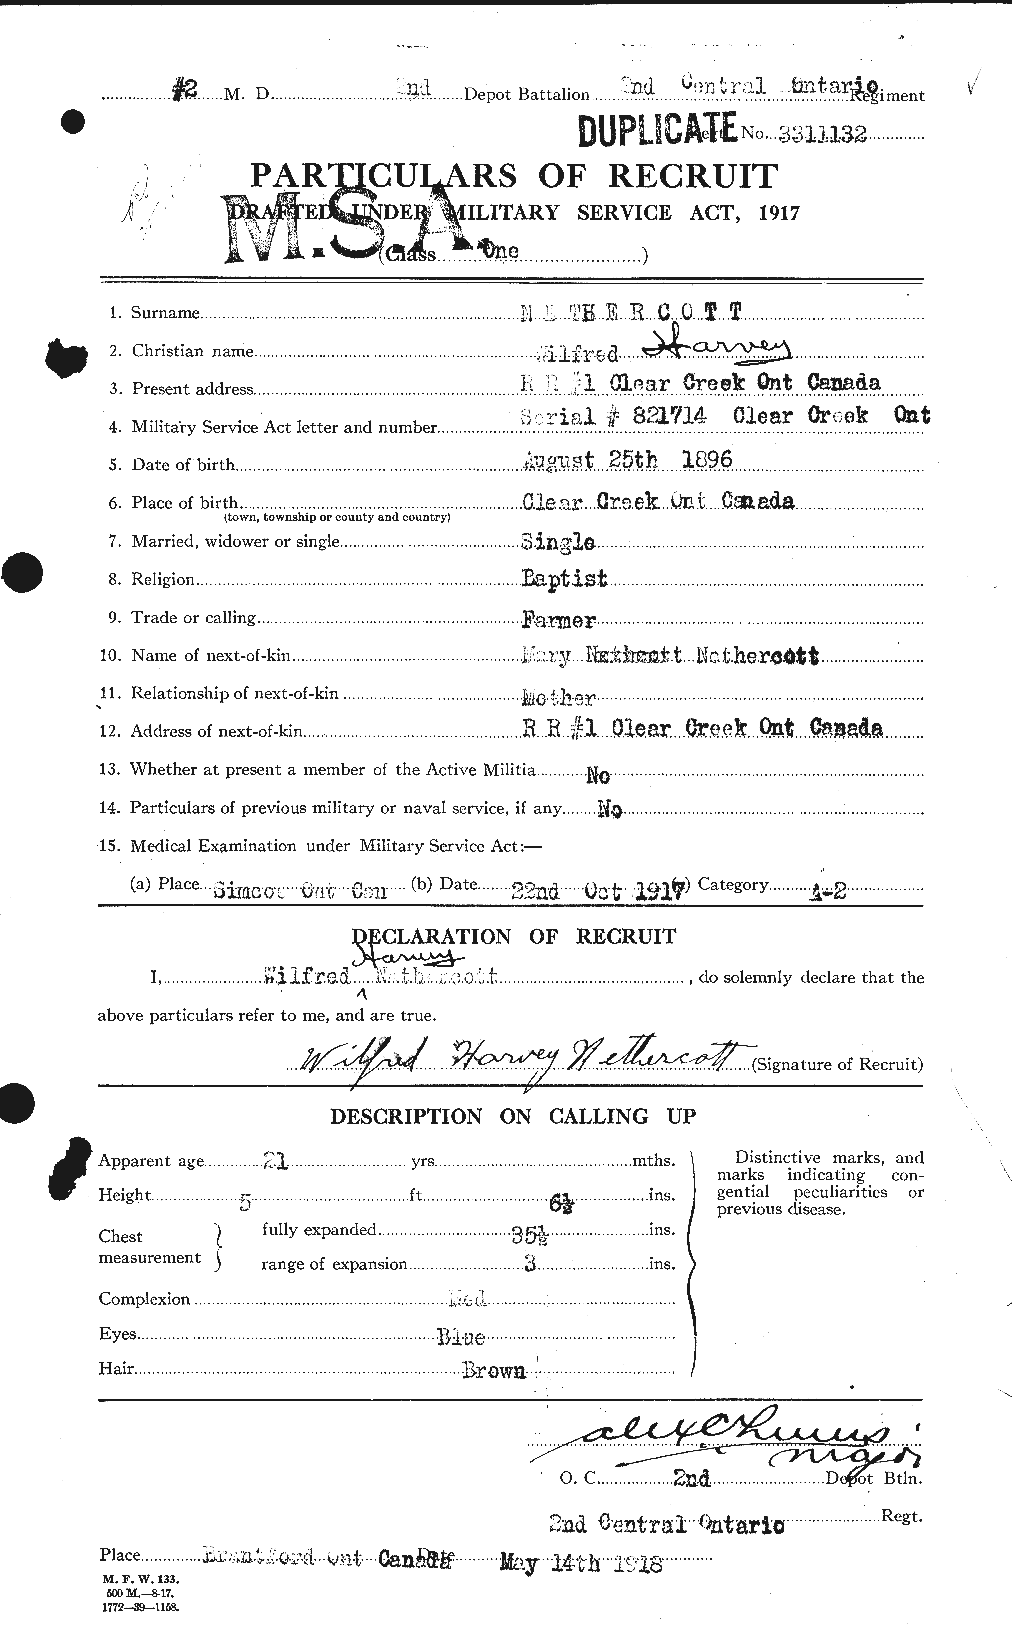 #2 M. D. 2nd Depot Battalion 2nd Central Ontario Regiment
DUPLICATE No. 3311132
PARTICULARS OF RECRUIT
DRAFTED UNDER MILITARY SERVICE ACT, 1917
M.S.A.
(Class One )
1. Surname NETHERCOTT
2. Christian name Wilfred Harvey
3. Present address R R #1 Clear Creek Ont Canada
4. Military Service Act letter and number Serial # 821714 Clear Creek Ont
5. Date of birth August 25th 1896
6. Place of birth Clear Creek Ont Canada
(town, township or county and country)
7. Married, widower or single Single
8. Religion Baptist
9. Trade or calling Farmer
10. Name of next-of-kin Mary Nethercott
11. Relationship of next-of-kin Mother
12. Address of next-of-kin R R #1 Clear Creek Ont Canada
13. Whether at present a member of the Active Militia No
14. Particulars of previous military or naval service, if any No
15. Medical Examination under Military Service Act:—
(a) Place Simcoe Ont Can (b) Date 22nd Oct 1917 (c) Category A-2
DECLARATION OF RECRUIT
Harvey
I, Wilfred Nethercott, do solemnly declare that the
above particulars refer to me, and are true.
Wilfred Harvey Nethercott (Signature of Recruit)
DESCRIPTION ON CALLING UP
Apparent age 21 yrs. mths.
Height 5 ft. 6½ ins.
Chest measurement
fully expanded 35½ ins.
range of expansion 3 ins.
Complexion Med
Eyes Blue
Hair Brown
Distinctive marks, and
marks indicating con-
genital peculiarities or
previous disease.
Major
O. C. 2nd Depot Btln.
2nd Central Ontario Regt.
Place Brantford Ont Canada May 14th 1918
M. F. W. 133.
500 M.—8-17.
1772—39—1158.